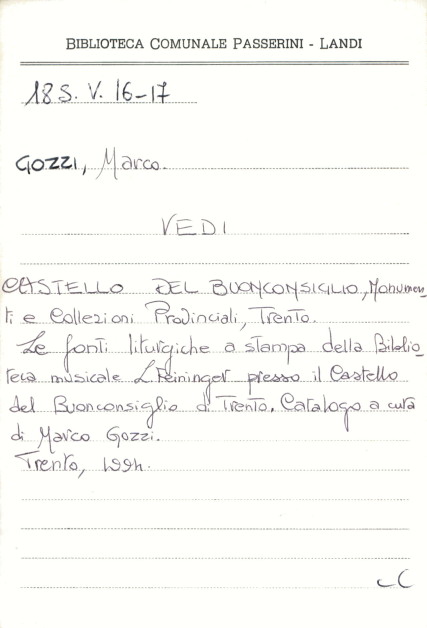 BIBLIOTECA COMUNALE PASSERINI - LANDI
18 S. V. 16-17
GOZZI, Marco.
VEDI
CASTELLO DEL BUONCONSIGLIO, Monumen-
ti e Collezioni Provinciali, Trento.
Le fonti liturgiche a stampa della Biblio-
teca musicale L. Feininger presso il Castello
del Buonconsiglio di Trento. Catalogo a cura
di Marco Gozzi.
Trento, 1994.